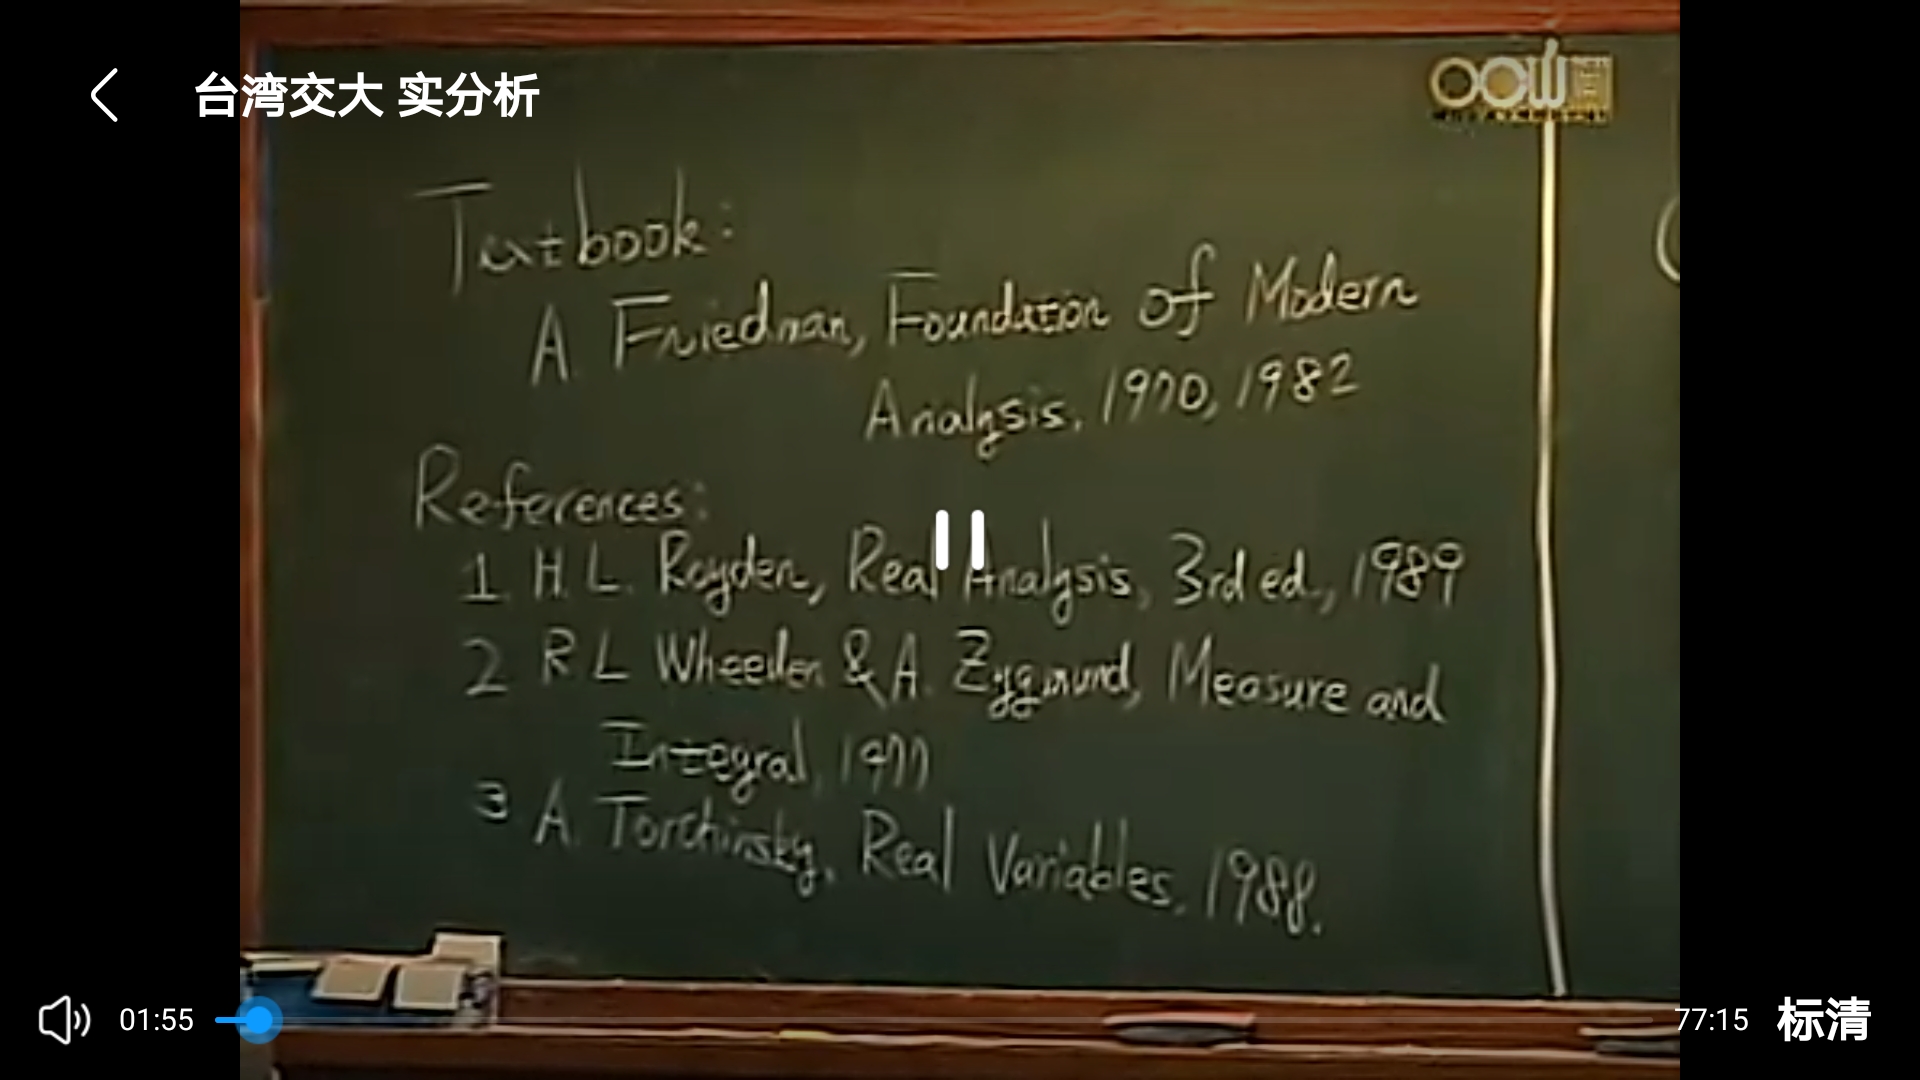 台湾交大 实分析
OCW
Textbook:
A. Friedman, Foundation of Modern
Analysis, 1970, 1982
References:
1. H. L. Royden, Real Analysis, 3rd ed., 1989
2 R L Wheeden & A. Zygmund, Measure and
Integral, 1977
3 A. Torchinsky, Real Variables, 1988.
01:55
77:15 标清